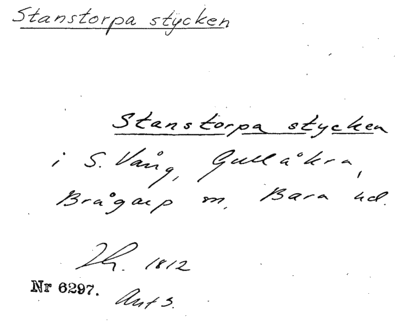 Stanstorpa stycken
Stanstorpa stycken
i S. Vång, Gullåkra,
Brågarp m. Bara hd.
Lh. 1812
Nr 6297. Ant 3.